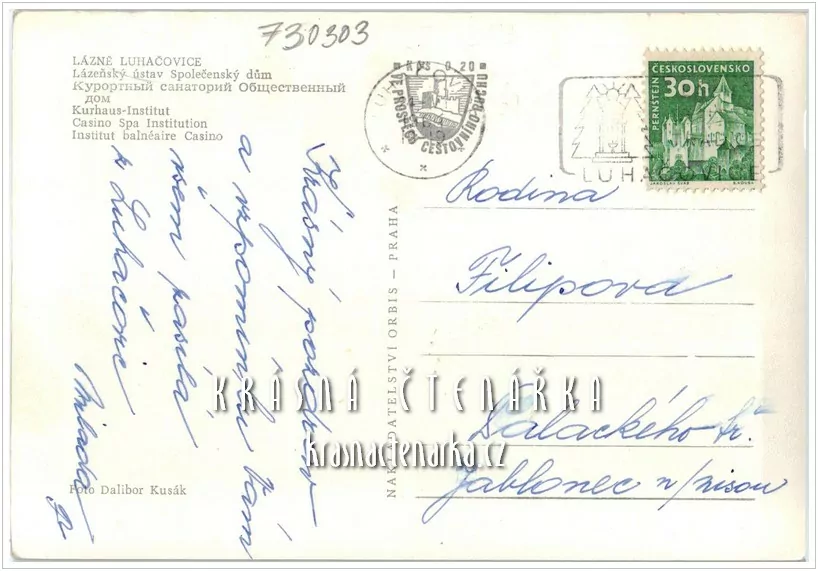 730303
LÁZNĚ LUHAČOVICE
Lázeňský ústav Společenský dům
Курортный санаторий Общественный
дом
Kurhaus-Institut
Casino Spa Institution
Institut balnéaire Casino
Krásný pozdrav
a vzpomínku Vám
všem zasílá
z Luhačovic
Foto Dalibor Kusák
NAKLADATELSTVÍ ORBIS — PRAHA
Kčs 0,20
VE PROSPĚCH CESTOVNÍHO RUCHU
ČESKOSLOVENSKO
30h
PERNŠTEJN
JAROSLAV ŠVÁB
LUHAČOVICE
Rodina
Filipova
Palackého tř.
Jablonec n/Nisou
KRÁSNÁ ČTENÁŘKA
krasnactenarka.cz